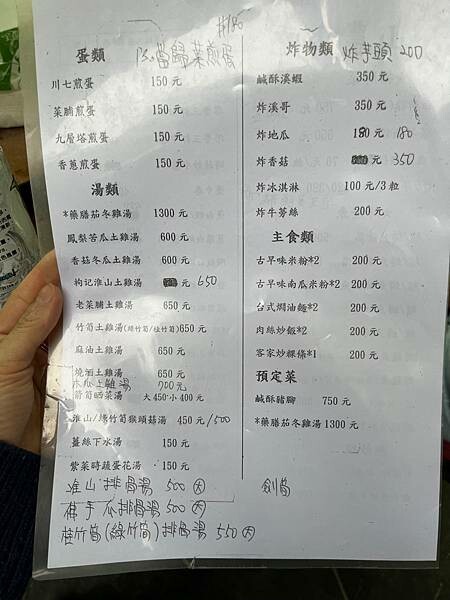 #180
蛋類 當歸菜煎蛋
川七煎蛋 150 元
菜脯煎蛋 150 元
九層塔煎蛋 150 元
香蔥煎蛋 150 元
湯類
*藥膳茄冬雞湯 1300 元
鳳梨苦瓜土雞湯 600 元
香菇冬瓜土雞湯 600 元
枸记淮山土雞湯 元 650
老菜脯土雞湯 650 元
竹筍土雞湯(綠竹筍/桂竹筍)650 元
麻油土雞湯 650 元
燒酒土雞湯 650 元
木瓜土雞湯 700元
箭筍晒菜湯 大 450 小 400 元
淮山/綠竹筍猴頭菇湯 450 元/500
薑絲下水湯 150 元
紫菜時蔬蛋花湯 150 元
淮山排骨湯 500 大
佛手瓜排骨湯 500 大
桂竹筍(綠竹筍)排骨湯 550 大
炸物類 炸芋頭 200
鹹酥溪蝦 350 元
炸溪哥 350 元
炸地瓜 180 元 180
炸香菇 元 350
炸冰淇淋 100 元/3 粒
炸牛蒡絲 200 元
主食類
古早味米粉*2 200 元
古早味南瓜米粉*2 200 元
台式燜油麵*2 200 元
肉絲炒飯*2 200 元
客家炒粿條*1 200 元
預定菜
鹹酥豬腳 750 元
*藥膳茄冬雞湯 1300 元
劍筍